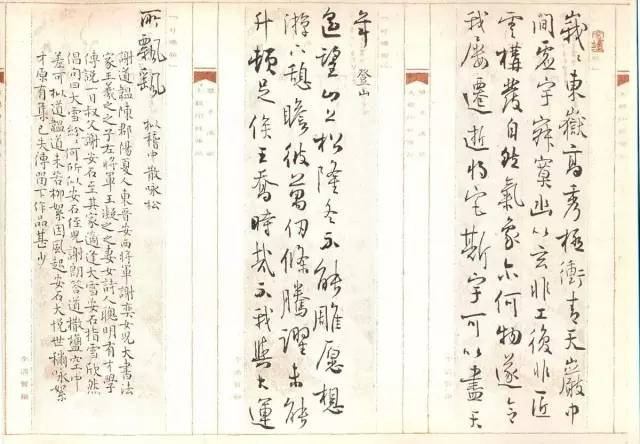 峩〻東嶽高秀極衝青天巖中
間虛宇寂寞幽以玄非工復非匠
雲構發自然氣象尔何物遂令
我屢遷逝將宅斯宇可以盡天
年 登山
遙望山上松隆冬不能雕愿想
游下憩瞻彼萬仞條騰躍未能
升頓足俟王喬時哉不我與大運
所飄颻
擬稽中散咏松
謝道韞陳郡陽夏人東晉安西將軍謝奕女兒大書法
家王羲之之子左將軍王凝之之妻女詩人聰明有才學
傳說一日叔父謝安石至其家適逢大雪安石指雪欣然
倡問曰大雪紛〻何所似安石侄兒謝朗答道撒鹽空中
差可擬道韞道未若柳絮因風起安石大悅世稱咏絮
才原有集已失傳留下作品甚少